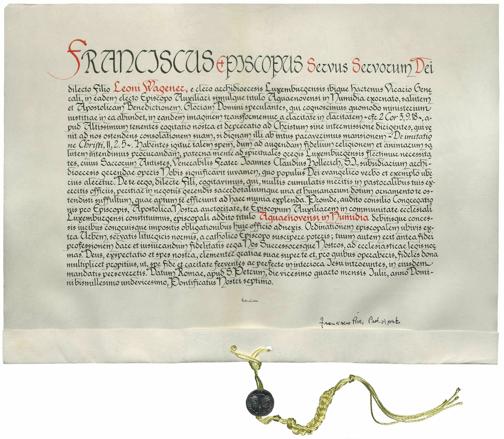 FRANCISCUS EPISCOPUS Servus Servorum Dei
dilecto Filio Leoni Wagener, e clero archidioecesis Luxemburgensis ibique hactenus Vicario Gene-
rali, in eadem electo Episcopo Auxiliari simulque titulo Aquaenovensi in Numidia exornato, salutem
et Apostolicam Benedictionem. Gloriam Domini speculantes, qui cognoscimus quomodo ministerium
iustitiae in ea abundet, in eandem imaginem transformemur a claritate in claritatem - cfr. 2 Cor 3, 9.18 -, a-
pud Altissimum tenentes cogitatio nostra et deprecatio ad Christum sine intermissione dirigentes, quate-
nus ad nos ostendens consolationem suam, si dignam illi ab intus paraverimus mansionem - De imitatio-
ne Christi, II, 2.5 -. Habentes igitur talem spem, dum ad augendam fidelium religionem et animarum sa-
lutem intendimus procurandam, paterena mente ad spirituales gregis Luxemburgensis flectimus necessita-
tes, cuius Sacrorum Antistes, Venerabilis Frater Ioannes Claudius Hollerich, S.I., subsidiarium archidi-
oecesis gerendae operis Nobis significavit iuvamen, quo populus Dei evangelico verbo et exemplo ube-
rius alecretur. De te ergo, dilecte Fili, cogitavimus, qui, multis cumulatus meritis in pastoralibus tuis ex-
ercitis officiis, peritiam in negotiis gerendis sacerdotaliumque una et humanarum dotum ornamento te os-
tendens suffultum, quare aptum te efficiunt ad haec munia explenda. Proinde, audito consilio Congregatio-
nis pro Episcopis, Apostolica Nostra auctoritate, te Episcopum Auxiliarem in communitate ecclesiali
Luxemburgensi constituimus, episcopali addito titulo Aquaenovensi in Numidia, debitisque conces-
sis iuribus congruisque impositis obligationibus huic officio adnexis. Ordinationem episcopalem ubivis ex-
tra Urbem, servatis liturgicis normis, a catholico Episcopo suscipere poteris; tuum autem erit antea fidei
professionem dare et iusiurandum fidelitatis erga Nos Successoresque Nostros, ad ecclesiasticae legis nor-
mas. Deus, exspectatio et spes nostra, clementer gratias suas superte et, pro quibus operaberis, fideles dona
multiplicet propitius, ut, spe fide et caritate ferventes ac perfecte in interiora Iesu introeuntes, in eiusdem
mandatis perseveretis. Datum Romae, apud S. Petrum, die vicesimo quarto mensis Iulii, anno Domi-
ni bismillesimo undevicesimo, Pontificatus Nostri septimo.
Franciscus